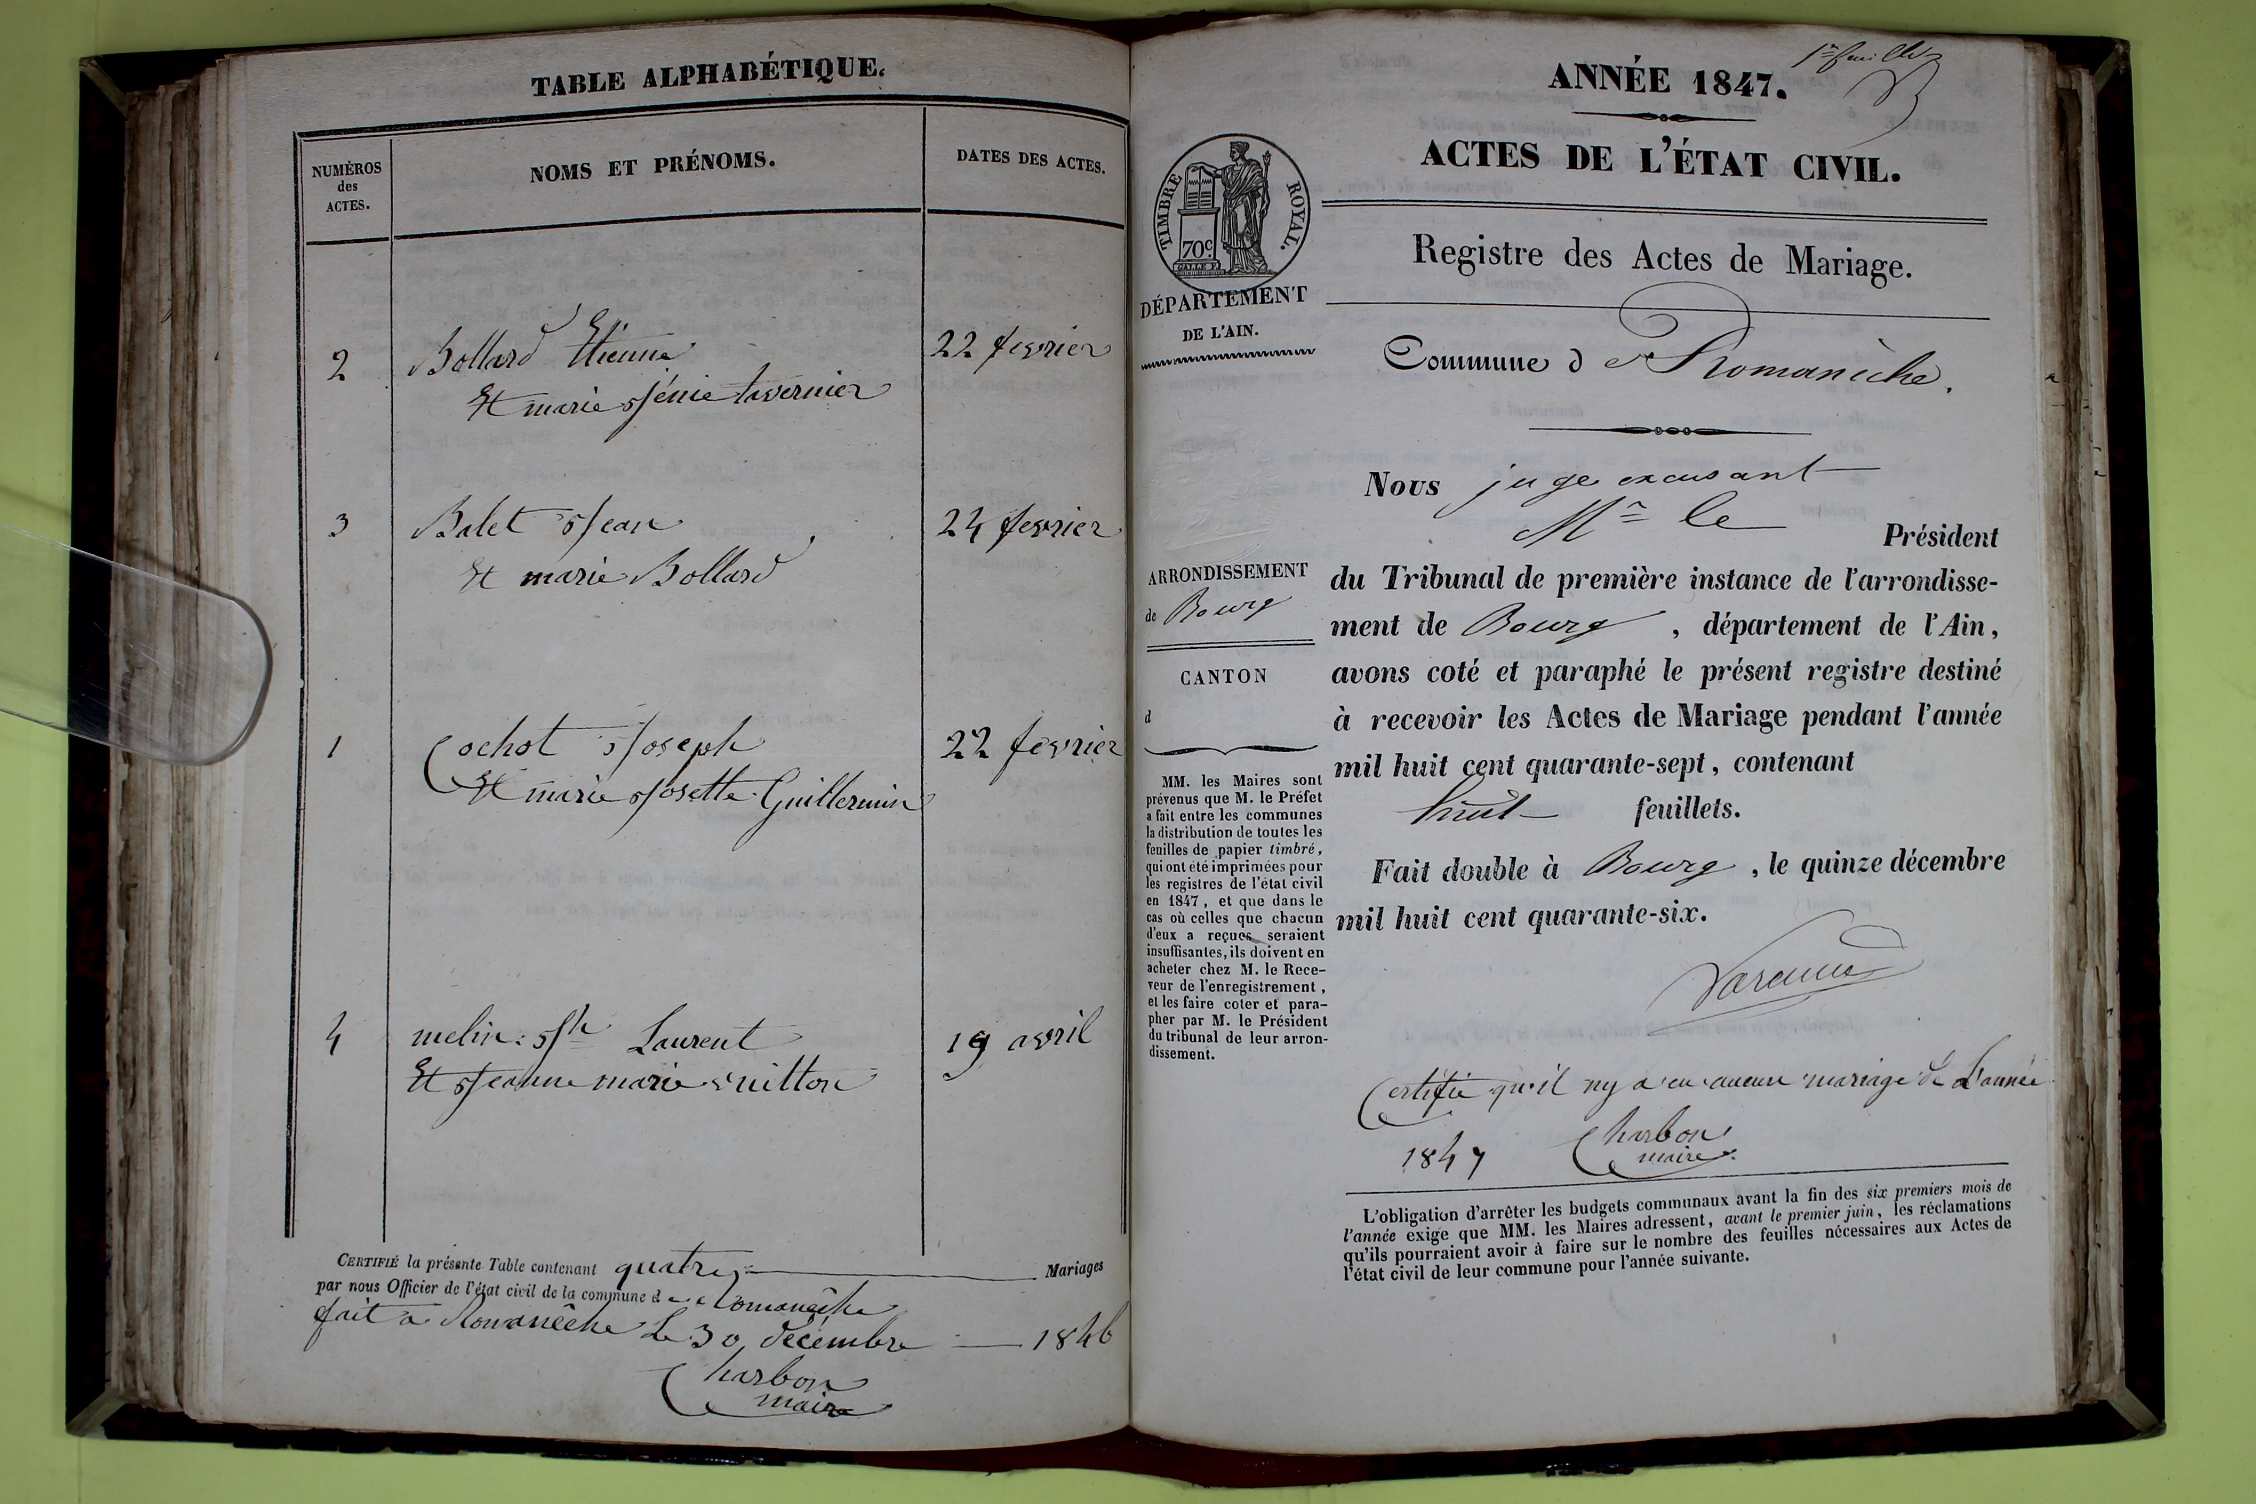 TABLE ALPHABÉTIQUE.
NUMÉROS
des
ACTES.
NOMS ET PRÉNOMS.
DATES DES ACTES.
2 Bollard Etienne 22 fevrier
Et marie Jénie tavernier
3 Balet Jean 24 fevrier
Et marie Bollard
1 Cochot Joseph 22 fevrier
Et marie Josette Guillermin
4 melin Jh Laurent 19 avril
Et Jeanne marie vuitton
CERTIFIÉ la présente Table contenant quatre Mariages
par nous Officier de l'état civil de la commune de Romanêche
fait a Romanêche le 30 décembre 1846
Charbon
maire
1er feuillet
ANNÉE 1847.
ACTES DE L'ÉTAT CIVIL.
TIMBRE ROYAL.
70c
DÉPARTEMENT
DE L'AIN.
Registre des Actes de Mariage.
Commune de Romanêche.
Nous juge excusant
Mr le
Président
ARRONDISSEMENT
de Bourg
CANTON
d
MM. les Maires sont
prévenus que M. le Préfet
a fait entre les communes
la distribution de toutes les
feuilles de papier timbré,
qui ont été imprimées pour
les registres de l'état civil
en 1847, et que dans le
cas où celles que chacun
d'eux a reçues seraient
insuffisantes, ils doivent en
acheter chez M. le Rece-
veur de l'enregistrement,
et les faire coter et para-
pher par M. le Président
du tribunal de leur arron-
dissement.
du Tribunal de première instance de l'arrondisse-
ment de Bourg, département de l'Ain,
avons coté et paraphé le présent registre destiné
à recevoir les Actes de Mariage pendant l'année
mil huit cent quarante-sept, contenant
huit feuillets.
Fait double à Bourg, le quinze décembre
mil huit cent quarante-six.
Certifie qu'il ny a eu aucun mariage de L'année
1847 Charbon
maire
L'obligation d'arrêter les budgets communaux avant la fin des six premiers mois de
l'année exige que MM. les Maires adressent, avant le premier juin, les réclamations
qu'ils pourraient avoir à faire sur le nombre des feuilles nécessaires aux Actes de
l'état civil de leur commune pour l'année suivante.